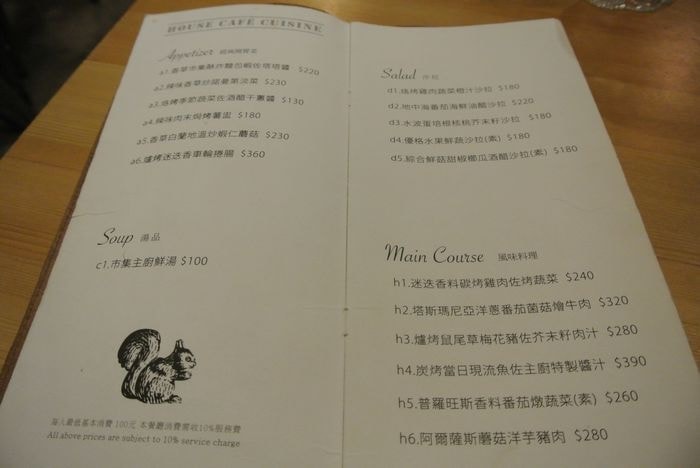 HOUSE CAFÉ CUISINE
Appetizer 經典開胃菜
a1.香草市集酥炸麵包蝦佐塔塔醬 $220
a2.辣味香草炒諾曼第淡菜 $230
a3.烙烤季節蔬菜佐酒醋干蔥醬 $130
a4.辣味肉末焗烤薯盅 $180
a5.香草白蘭地溫炒蝦仁蘑菇 $230
a6.爐烤迷迭香車輪捲腸 $360
Soup 湯品
c1.市集主廚鮮湯 $100
每人最低基本消費 100元 本餐廳消費需收10%服務費
All above prices are subject to 10% service charge
Salad 沙拉
d1.烙烤雞肉蔬菜橙汁沙拉 $180
d2.地中海番茄海鮮油醋沙拉 $220
d3.水波蛋培根核桃芥末籽沙拉 $180
d4.優格水果鮮蔬沙拉(素) $180
d5.綜合鮮菇甜椒櫛瓜酒醋沙拉(素) $180
Main Course 風味料理
h1.迷迭香料碳烤雞肉佐烤蔬菜 $240
h2.塔斯瑪尼亞洋蔥番茄菌菇燴牛肉 $320
h3.爐烤鼠尾草梅花豬佐芥末籽肉汁 $280
h4.炭烤當日現流魚佐主廚特製醬汁 $390
h5.普羅旺斯香料番茄燉蔬菜(素) $260
h6.阿爾薩斯蘑菇洋芋豬肉 $280